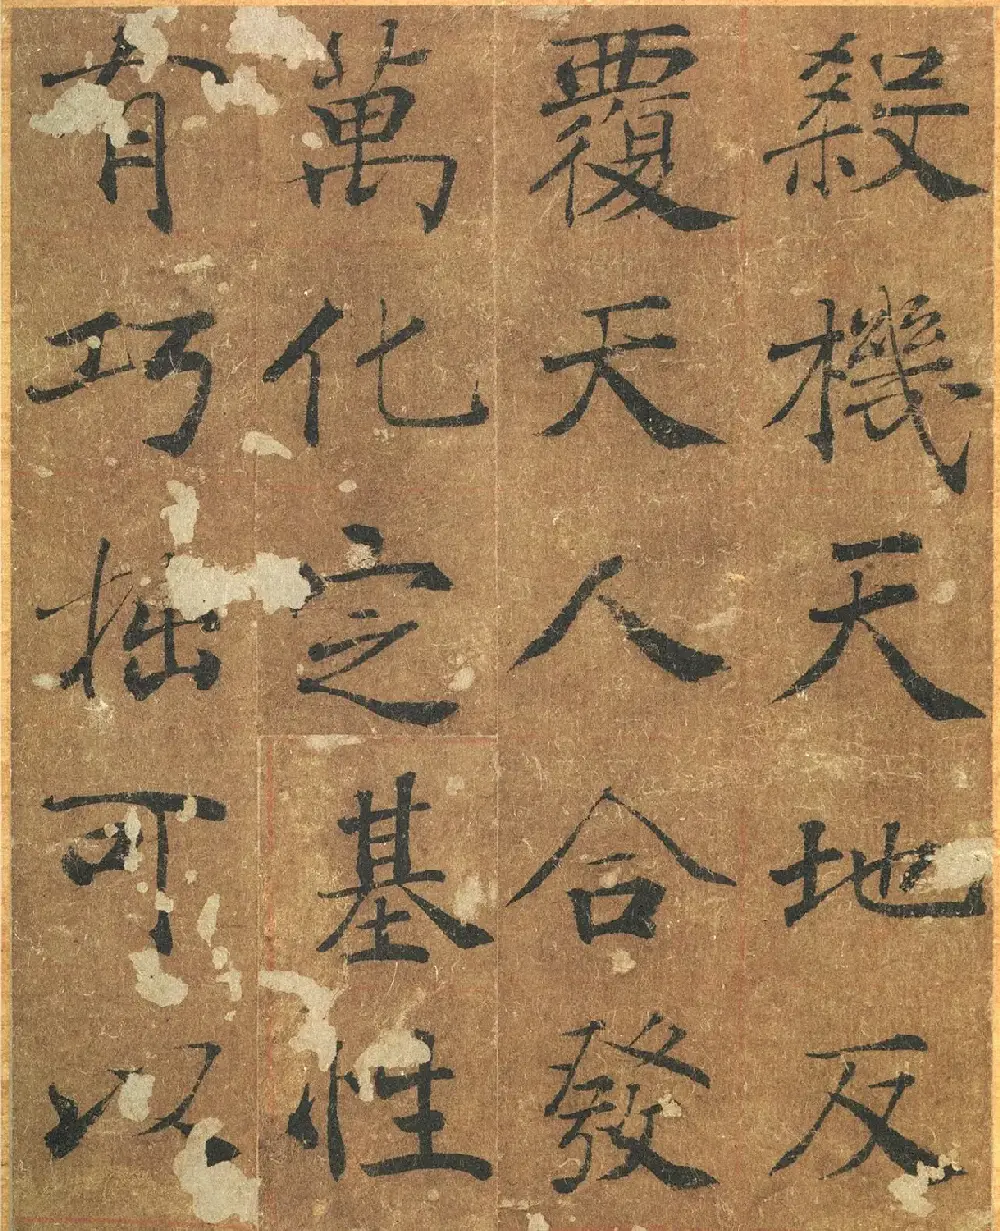 殺機天地反
覆天人合發
萬化之基性
有巧拙可以